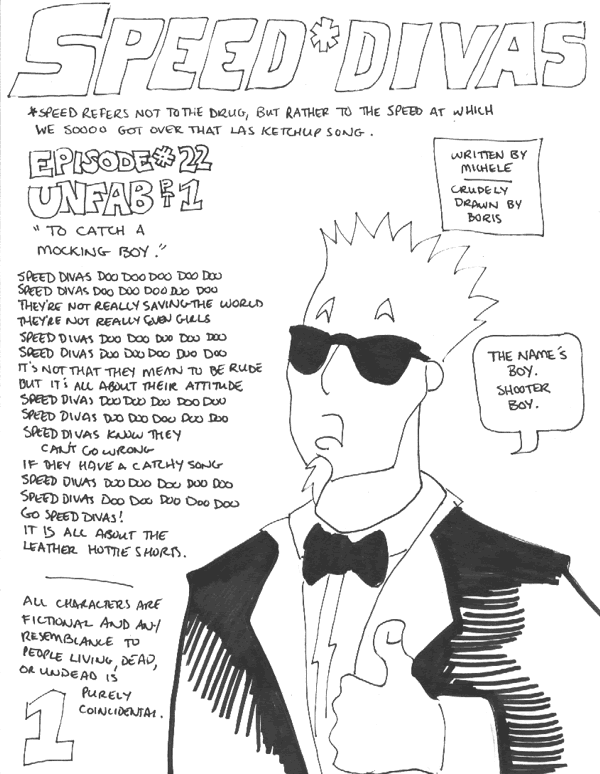 SPEED*DIVAS
*SPEED REFERS NOT TO THE DRUG, BUT RATHER TO THE SPEED AT WHICH
WE SOOOO GOT OVER THAT LAS KETCHUP SONG.
EPISODE #22
UNFAB PT 1
"TO CATCH A
MOCKING BOY."
WRITTEN BY
MICHELE
CRUDELY
DRAWN BY
BORIS
SPEED DIVAS DOO DOO DOO DOO DOO
SPEED DIVAS DOO DOO DOO DOO DOO
THEY'RE NOT REALLY SAVING THE WORLD
THEY'RE NOT REALLY EVEN GIRLS
SPEED DIVAS DOO DOO DOO DOO DOO
SPEED DIVAS DOO DOO DOO DOO DOO
IT'S NOT THAT THEY MEAN TO BE RUDE
BUT IT'S ALL ABOUT THEIR ATTITUDE
SPEED DIVAS DOO DOO DOO DOO DOO
SPEED DIVAS DOO DOO DOO DOO DOO
SPEED DIVAS KNOW THEY
CAN'T GO WRONG
IF THEY HAVE A CATCHY SONG
SPEED DIVAS DOO DOO DOO DOO DOO
SPEED DIVAS DOO DOO DOO DOO DOO
GO SPEED DIVAS!
IT IS ALL ABOUT THE
LEATHER HOTTIE SHORTS.
THE NAME'S
BOY.
SHOOTER
BOY.
ALL CHARACTERS ARE
FICTIONAL AND ANY
RESEMBLANCE TO
PEOPLE LIVING, DEAD,
OR UNDEAD IS
PURELY
COINCIDENTAL.
1